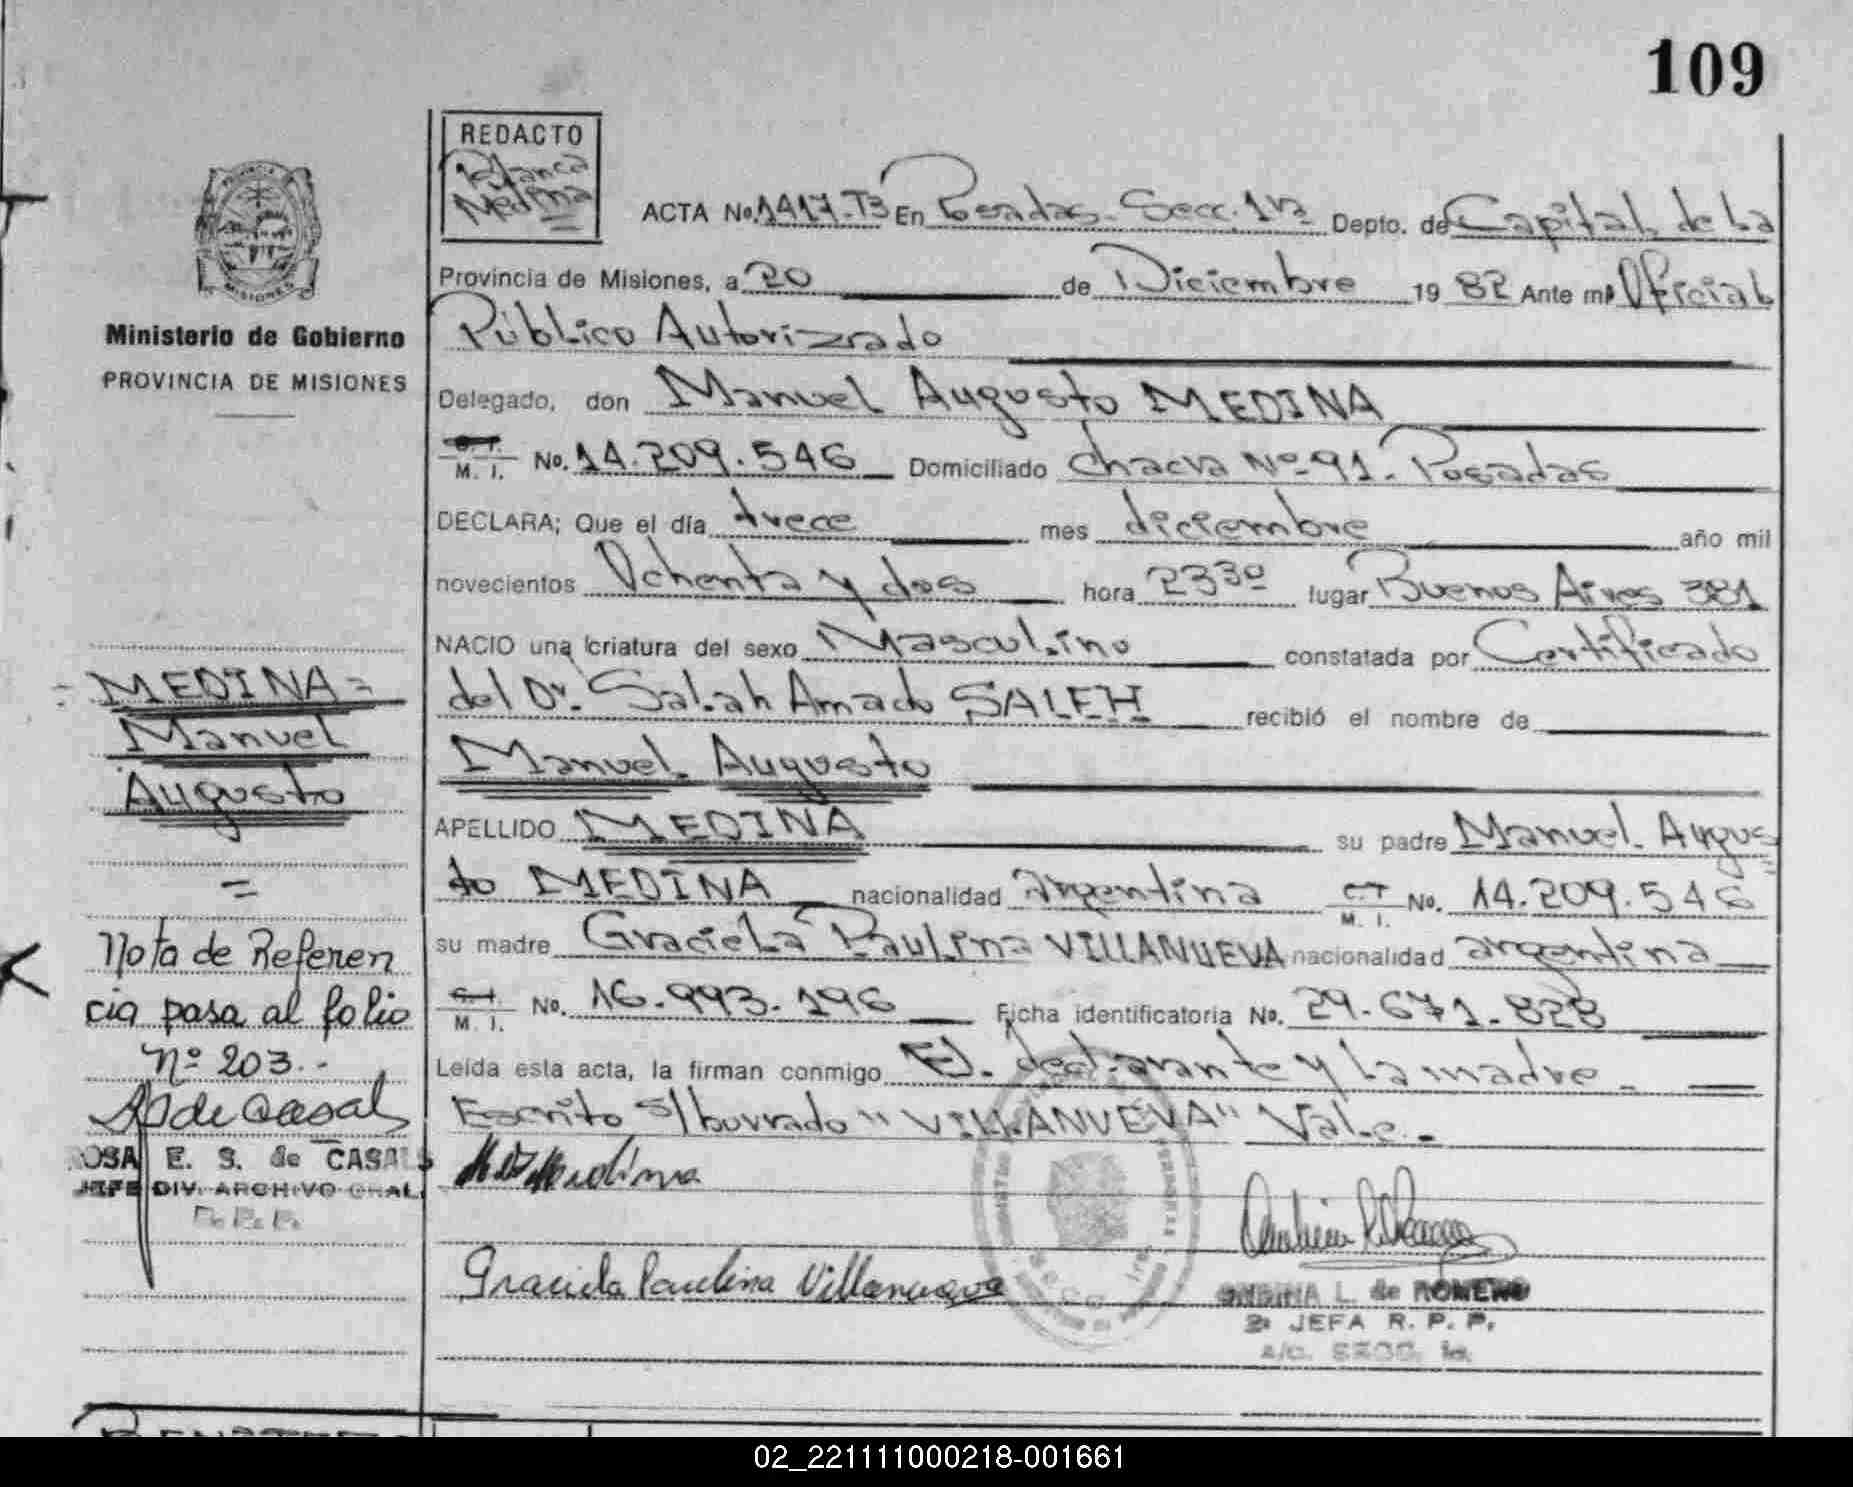 109
REDACTO
Blanca
Medina
ACTA No. 1417-T3 En Posadas - Secc. 1ra Depto. de Capital de la
Provincia de Misiones, a 20 de Diciembre 19 82 Ante mí Oficial
Público Autorizado
Delegado, don Manuel Augusto MEDINA
C. I.
M. I. No. 14.209.546 Domiciliado Chacra Nº 91. Posadas
DECLARA; Que el día trece mes diciembre año mil
novecientos Ochenta y dos hora 23³⁰ lugar Buenos Aires 381
NACIO una criatura del sexo Masculino constatada por Certificado
del Dr. Salah Amado SALEH recibió el nombre de
Manuel Augusto
APELLIDO MEDINA su padre Manuel Augus
to MEDINA nacionalidad argentina C. I.
M. I. No. 14.209.546
su madre Graciela Paulina VILLANUEVA nacionalidad argentina
C. I.
M. I. No. 16.993.196 Ficha identificatoria No. 29.671.828
Leída esta acta, la firman conmigo El declarante y la madre -
Escrito s/borrado "VILLANUEVA" Vale.-
Graciela Paulina Villanueva
L. de ROMERO
2ª JEFA R. P. P.
a/c. SECC. 1a.
MISIONES
Ministerio de Gobierno
PROVINCIA DE MISIONES
= MEDINA =
Manuel
Augusto
=
Nota de Referen
cia pasa al folio
nº 203.-
ROSA E. S. de CASALS
JEFE DIV. ARCHIVO GRAL.
R. P. P.
02_221111000218-001661